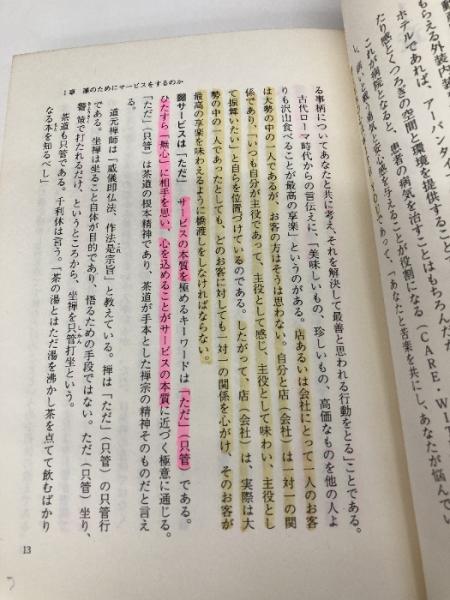 もらえる外装内装
ホテルであれば、アーバンタイ
たり感とくつろぎの空間と環境を提供すること
これが病院となると、患者の病気を治すことはもちろんだ
え、痛い、と教え病気と安心感を与えることが役割になる（CARE・WIT
であって、「あなたと苦楽を共にし、あなたが悩んでい
る事柄についてあなたと共に考え、それを解決して最善と思われる行動をとる」ことである。
古代ローマ時代からの言伝えに、「美味しいもの、珍しいもの、高価なものを他の人よ
りも沢山食べることが最高の享楽」というのがある。店あるいは会社にとって一人のお客
は大勢の中の一人であるが、お客の方はそうは思わない。自分と店（会社）は一対一の関
係であり、「いつも自分が主役であって、主役として感じ、主役として味わい、主役とし
て振舞いたい」と自らを位置づけているのである。したがって、店（会社）は、実際は大
勢の中の一人であったとしても、どのお客に対しても一対一の関係を心がけ、そのお客が
最高の享楽を味わえるように橋渡しをしなければならない。
サービスは「ただ」　サービスの本質を極めるキーワードは「ただ」（只管）である。
ひたすら「無心」に相手を思い、心を込めることがサービスの本質に近づく極意に通じる。
「ただ」（只管）は茶道の根本精神であり、茶道が手本とした禅宗の精神そのものだと言え
る。
道元禅師は「威儀即仏法、作法是宗旨」と教えている。禅は「ただ」（只管）の只管行
である。坐禅は坐ること自体が目的であり、悟るための手段ではない。ただ（只管）坐り、
警策で打たれるだけ、というところから、坐禅を只管打坐という。
茶道も只管である。千利休は言う。「茶の湯とはただ湯を沸かし茶を点てて飲むばかり
なる本を知るべし」
1章　誰のためにサービスをするのか
13